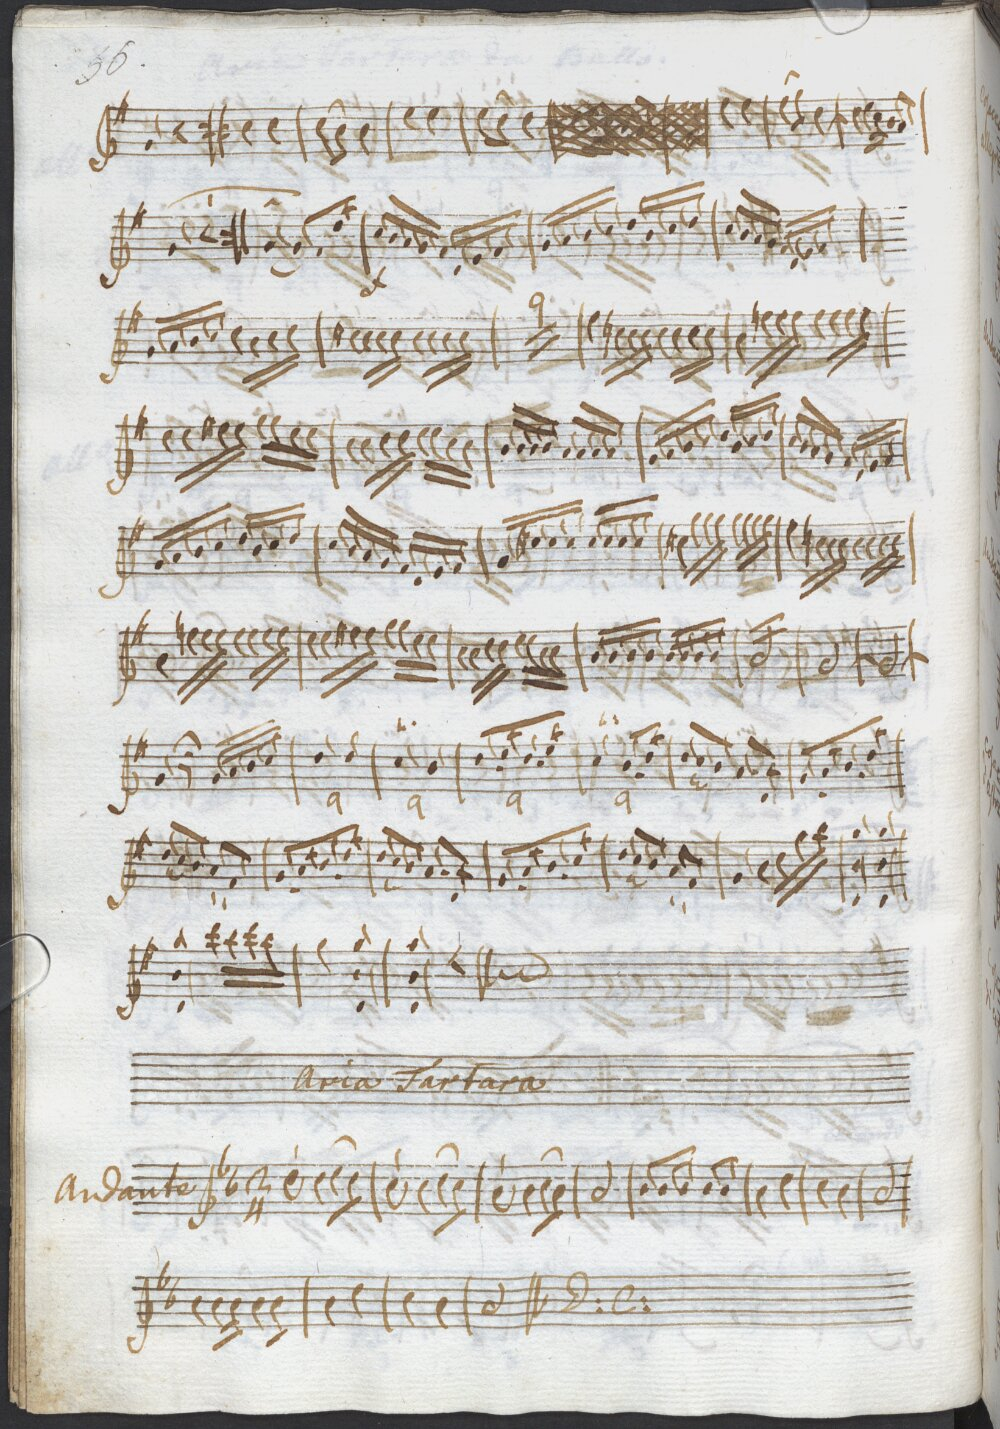 36.
Aria Tartara
Andante
D: C: